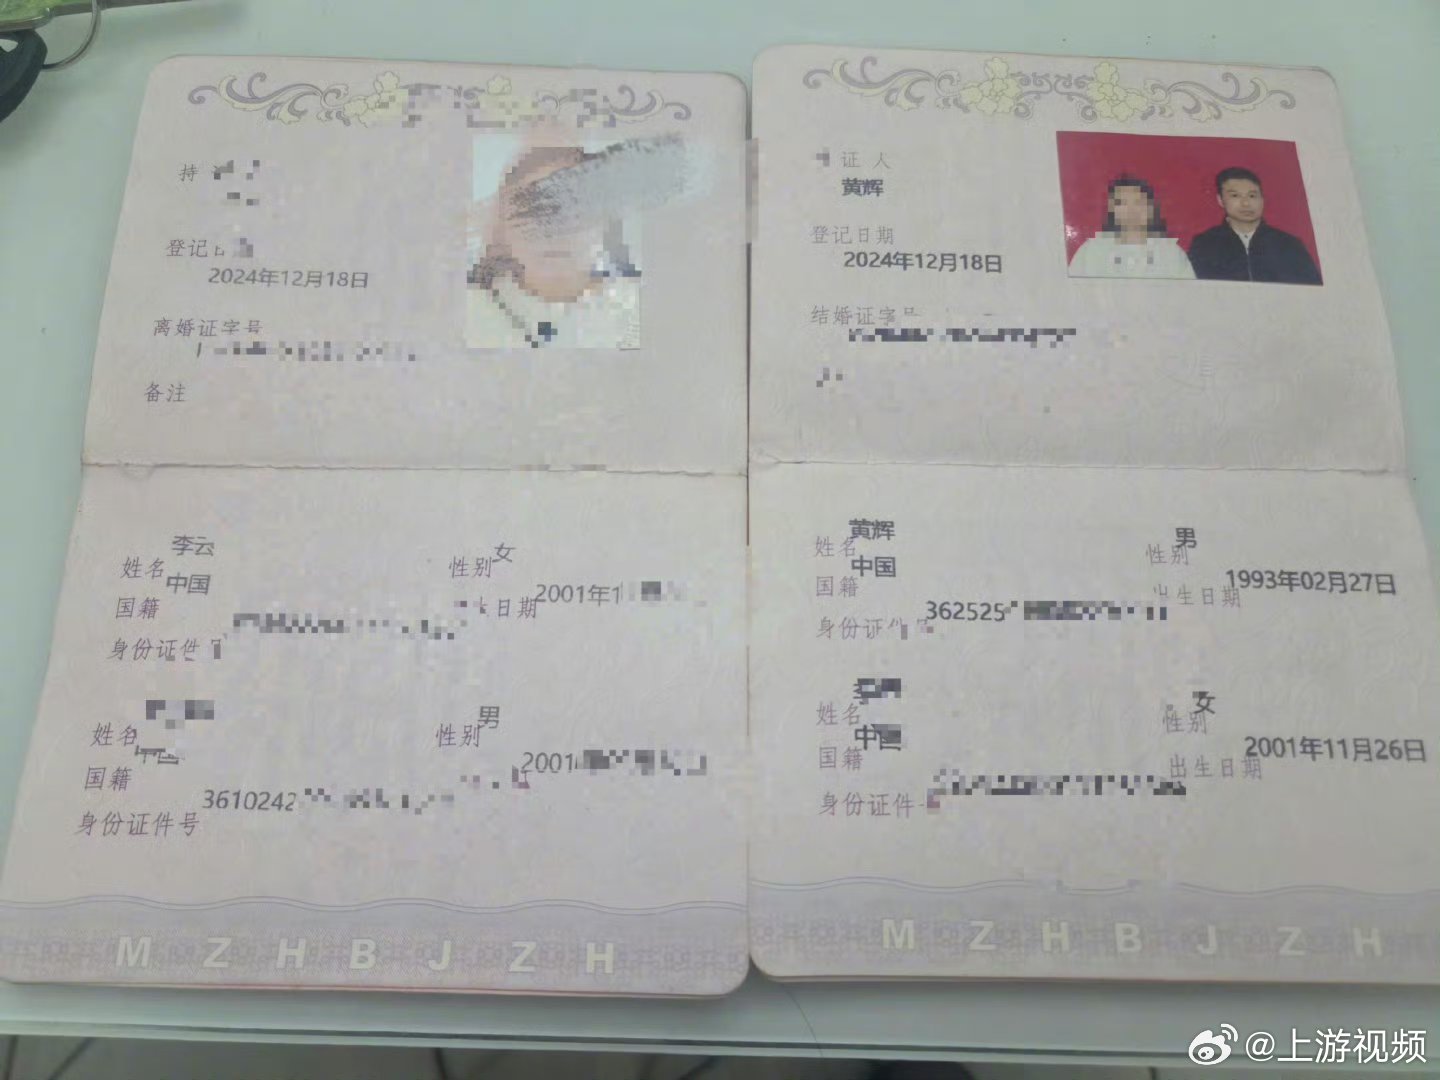 持
登记日
2024年12月18日
离婚证字号
备注
李云
姓名
女
性别
中国
国籍
2001年1
日期
身份证件
姓名
男
性别
中国
国籍
2001
3610242
身份证件号
MZHBJZH
证人
黄辉
登记日期
2024年12月18日
结婚证字号
黄辉
姓名
男
性别
中国
国籍
1993年02月27日
出生日期
362525
身份证件号
姓名
女
性别
中国
国籍
2001年11月26日
出生日期
身份证件
MZHBJZH
@上游视频